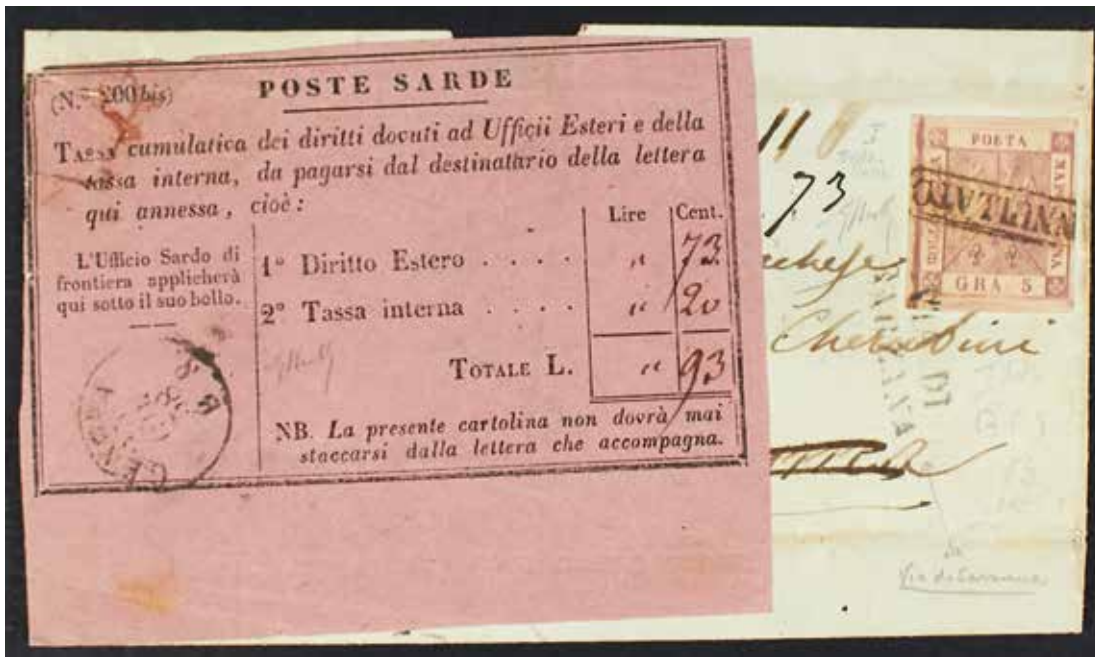 (N.º 200 bis) POSTE SARDE
TASSA cumulativa dei diritti dovuti ad Ufficii Esteri e della
tassa interna, da pagarsi dal destinatario della lettera
qui annessa, cioè:
Lire Cent.
L'Ufficio Sardo di
frontiera applicherà
qui sotto il suo bollo.
1º Diritto Estero . . . . " 73
2º Tassa interna . . . . " 20
TOTALE L. " 93
NB. La presente cartolina non dovrà mai
staccarsi dalla lettera che accompagna.
GENOVA
11
73
POSTA
ANNULLATO
GRA 5
Cherubini
SARZANA
Via di Sarzana